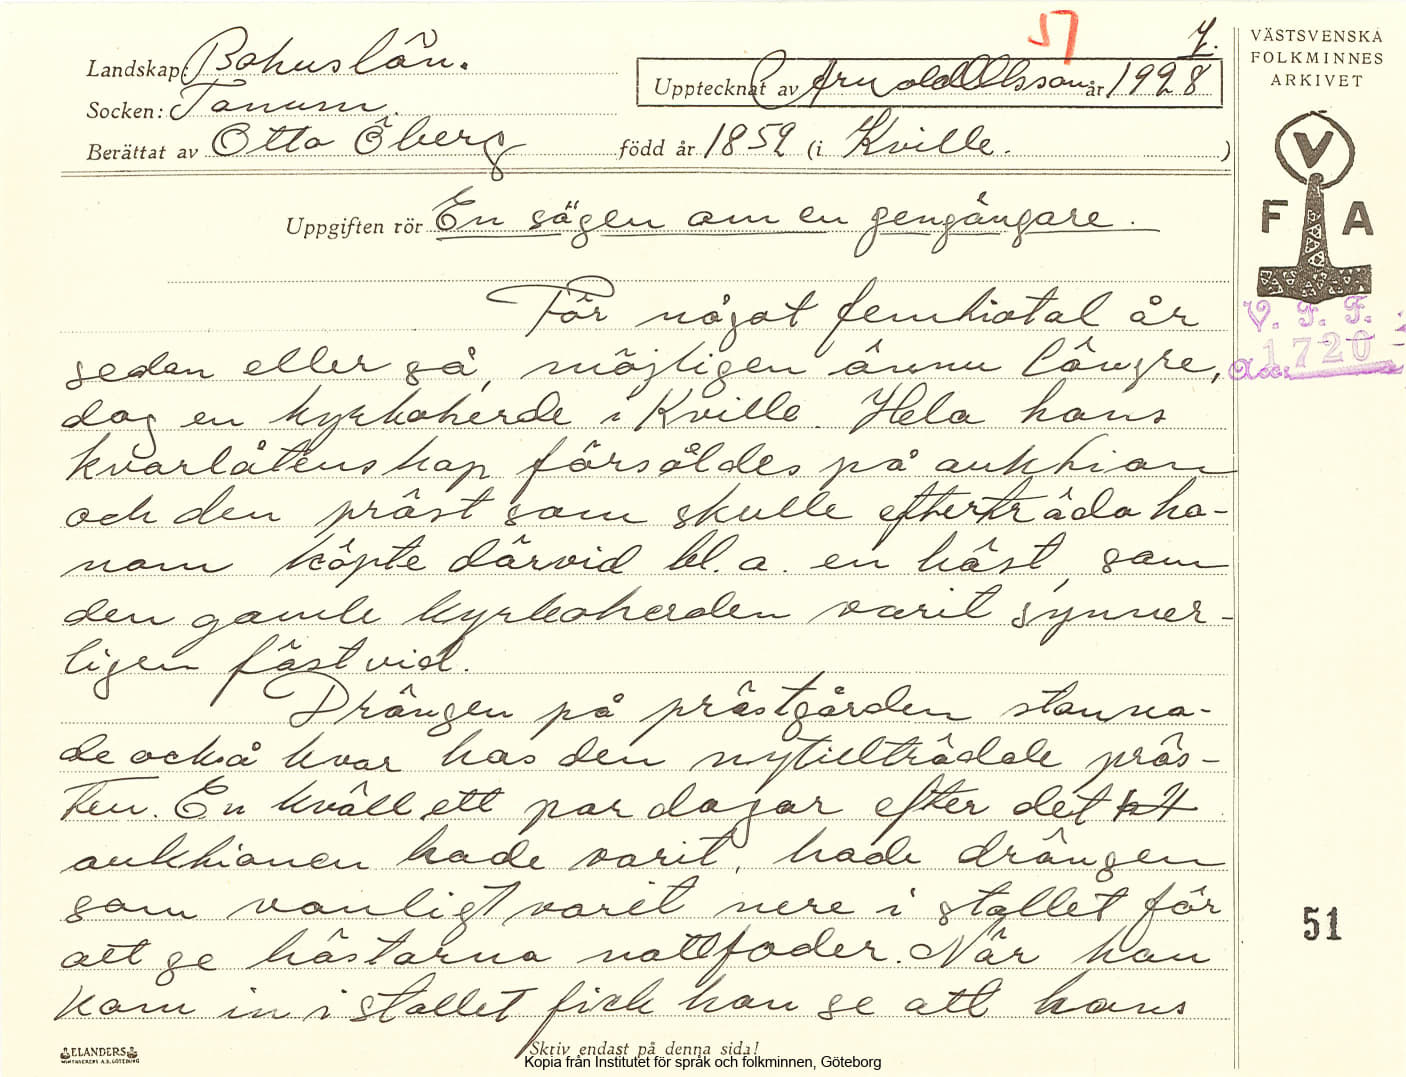 51 7.
Landskap: Bohuslän.
Upptecknat av Arnold Olsson år 1928
Socken: Tanum.
Berättat av Otto Öberg född år 1859 (i Kville. )
VÄSTSVENSKA
FOLKMINNES
ARKIVET
V
F A
V. F. F.
Acc. 1720
Uppgiften rör En sägen om en gengångare.
För något femtiotal år
sedan eller så, möjligen ännu längre,
dog en kyrkoherde i Kville. Hela hans
kvarlåtenskap försåldes på auktion
och den präst som skulle efterträda ho-
nom köpte därvid bl. a. en häst, som
den gamle kyrkoherden varit synner-
ligen fäst vid.
Drängen på prästgården stanna-
de också kvar hos den nytillträdde präs-
ten. En kväll ett par dagar efter det
auktionen hade varit, hade drängen
som vanligt varit nere i stallet för
att ge hästarna nattfoder. När han
kom in i stallet fick han se att hans
51
ELANDERS
Skriv endast på denna sida!
Kopia från Institutet för språk och folkminnen, Göteborg